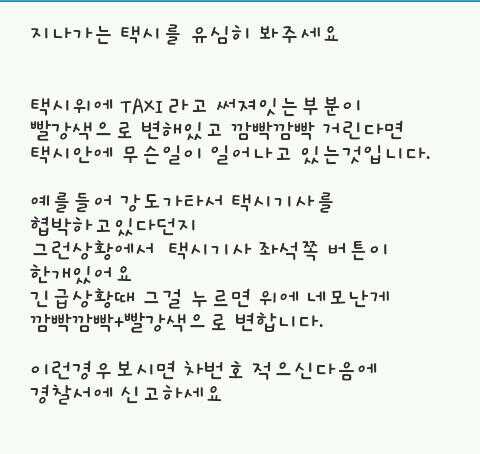 지나가는 택시를 유심히 봐주세요
택시위에 TAXI 라고 써져잇는부분이
빨강색으로 변해있고 깜빡깜빡 거린다면
택시안에 무슨일이 일어나고 있는것입니다.
예를들어 강도가타서 택시기사를
협박하고있다던지
그런상황에서 택시기사 좌석쪽 버튼이
한개있어요
긴급상황때 그걸 누르면 위에 네모난게
깜빡깜빡+빨강색으로 변합니다.
이런경우보시면 차번호 적으신다음에
경찰서에 신고하세요